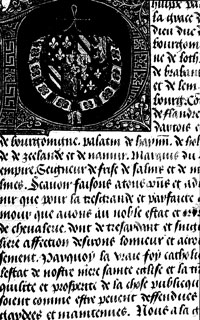 la grace d
dieu duc
bourgoin
de loth
de braban
et de lem
bourg. Co
de flandre
dartois e
de bourgoingne. palatin de haynn. de hol
de de zeelande et de namur. Marquis du
empire. Seigneur de frise de salins et de m
lines. Scavoir faisons a tous pñs et ad
nir que pour la tresgrande et parfaitte
mour que avons au noble estat et or
de chevalerie. dont de tresardant et sing
liere affection desirons lonneur et accro
sement. Parquoy la vraye foy catholi
lestat de nostre mere sainte eglise et la t
quilite et prosperite de la chose publiq
soient comme estre peuent deffendues
gardees et maintenues. Nous a la g